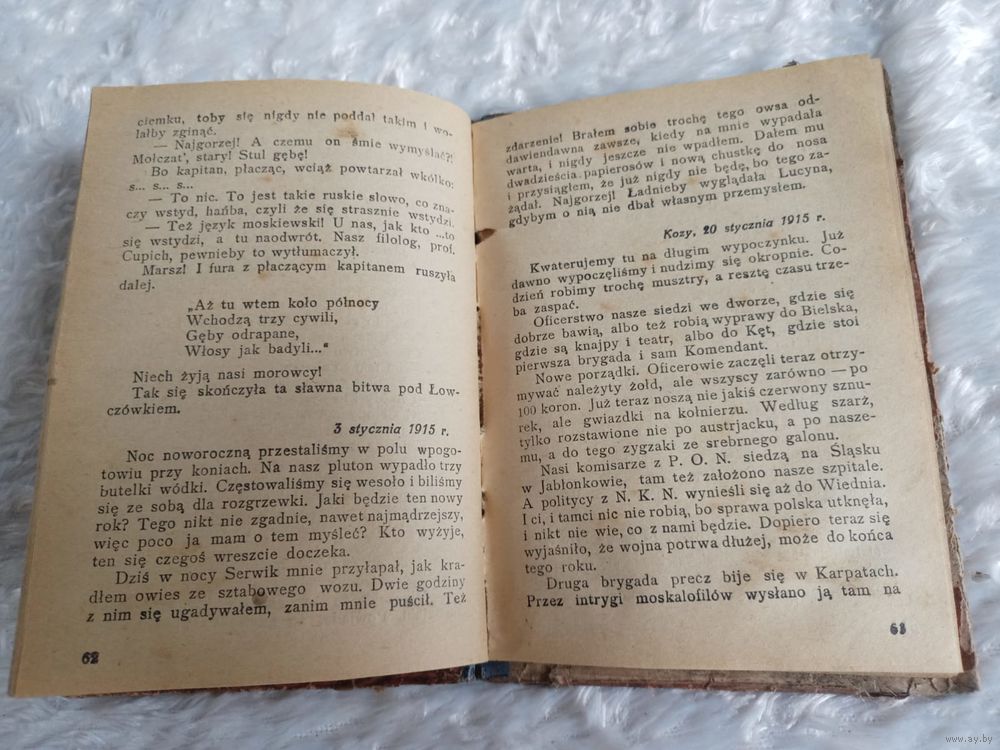 ciemku, toby się nigdy nie poddał takim i wo-
lałby zginąć.
— Najgorzej! A czemu on śmie wymyślać?!
Mołczat’, stary! Stul gębę!
Bo kapitan, płacząc, wciąż powtarzał wkółko:
s... s... s...
— To nic. To jest takie ruskie słowo, co zna-
czy wstyd, hańba, czyli że się strasznie wstydzi.
— Też język moskiewski! U nas, jak kto ...to
się wstydzi, a tu naodwrót. Nasz filolog, prof.
Cupich, pewnieby to wytłumaczył.
Marsz! I fura z płaczącym kapitanem ruszyła
dalej.
„Aż tu wtem koło północy
Wchodzą trzy cywili,
Gęby odrapane,
Włosy jak badyli...“
Niech żyją nasi morowcy!
Tak się skończyła ta sławna bitwa pod Łow-
czówkiem.
3 stycznia 1915 r.
Noc noworoczną przestaliśmy w polu wpogo-
towiu przy koniach. Na nasz pluton wypadło trzy
butelki wódki. Częstowaliśmy się wesoło i biliśmy
się ze sobą dla rozgrzewki. Jaki będzie ten nowy
rok? Tego nikt nie zgadnie, nawet najmądrzejszy,
więc poco ja mam o tem myśleć? Kto wyżyje,
ten się czegoś wreszcie doczeka.
Dziś w nocy Serwik mnie przyłapał, jak kra-
dłem owies ze sztabowego wozu. Dwie godziny
z nim się ugadywałem, zanim mnie puścił. Też
62
zdarzenie! Brałem sobie trochę tego owsa od-
dawiendawna zawsze, kiedy na mnie wypadała
warta, i nigdy jeszcze nie wpadłem. Dałem mu
dwadzieścia papierosów i nową chustkę do nosa
i przysiągłem, że już nigdy nie będę, bo tego za-
żądał. Najgorzej! Ładnieby wyglądała Lucyna,
gdybym o nią nie dbał własnym przemysłem.
Kozy, 20 stycznia 1915 r.
Kwaterujemy tu na długim wypoczynku. Już
dawno wypoczęliśmy i nudzimy się okropnie. Co-
dzień robimy trochę musztry, a resztę czasu trze-
ba zaspać.
Oficerstwo nasze siedzi we dworze, gdzie się
dobrze bawią, albo też robią wyprawy do Bielska,
gdzie są knajpy i teatr, albo do Kęt, gdzie stoi
pierwsza brygada i sam Komendant.
Nowe porządki. Oficerowie zaczęli teraz otrzy-
mywać należyty żołd, ale wszyscy zarówno — po
100 koron. Już teraz noszą nie jakiś czerwony sznu-
rek, ale gwiazdki na kołnierzu. Według szarż,
tylko rozstawione nie po austrjacku, a po nasze-
mu, a do tego zygzaki ze srebrnego galonu.
Nasi komisarze z P. O. N. siedzą na Śląsku
w Jabłonkowie, tam też założono nasze szpitale.
A politycy z N. K. N. wynieśli się aż do Wiednia.
I ci, i tamci nic nie robią, bo sprawa polska utknęła,
i nikt nie wie, co z nami będzie. Dopiero teraz się
wyjaśniło, że wojna potrwa dłużej, może do końca
tego roku.
Druga brygada precz bije się w Karpatach.
Przez intrygi moskalofilów wysłano ją tam na
63
www.ay.by